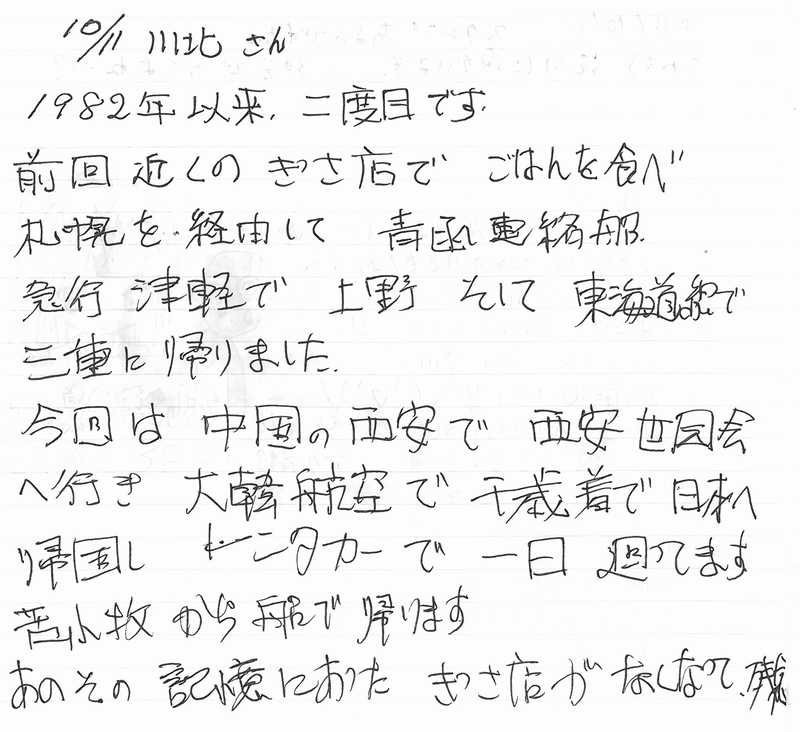 10/11 川北さん
1982年以来、二度目です。
前回 近くの きっさ店で ごはんを食べ
札幌を経由して 青函連絡船
急行 津軽で 上野 そして 東海道線で
三重に帰りました。
今回は 中国の西安で 西安世園会
へ行き 大韓航空で 千歳着で 日本へ
帰国し レンタカーで 一日 廻ってます
苫小牧から船で 帰ります
あのその 記憶にあった きっさ店が なくなって、残